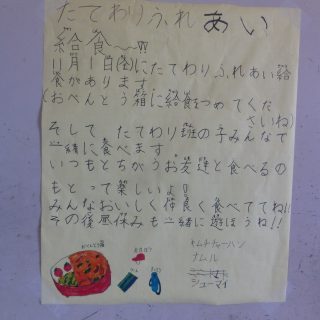 たてわりふれあい
給食〜!!
11月1日(金)にたてわりふれあい給
食があります。
(おべんとう箱に給食をつめてくだ
さいね)
そして たてわり班の子みんなで
一緒に食べます。
いつもとちがうお友達と食べるの
もとっても楽しいよ!!
みんなおいしく仲良く食べててね!!
その後昼休みも一緒に遊ぼうね!!
おべんとう箱
キムチチャーハン
ナムル
シューマイ